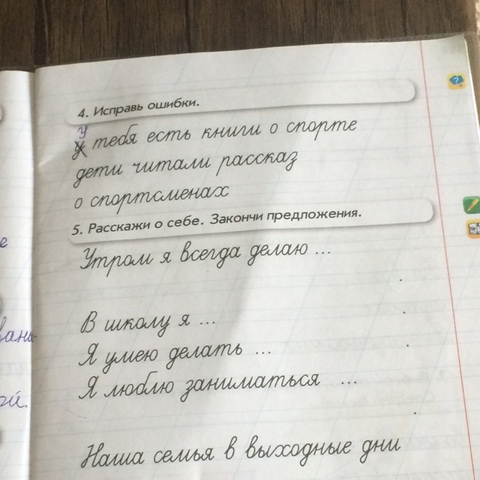 4. Исправь ошибки.
У
у тебя есть книги о спорте
дети читали рассказ
о спортсменах
5. Расскажи о себе. Закончи предложения.
Утром я всегда делаю ...
В школу я ...
Я умею делать ...
Я люблю заниматься ...
Наша семья в выходные дни